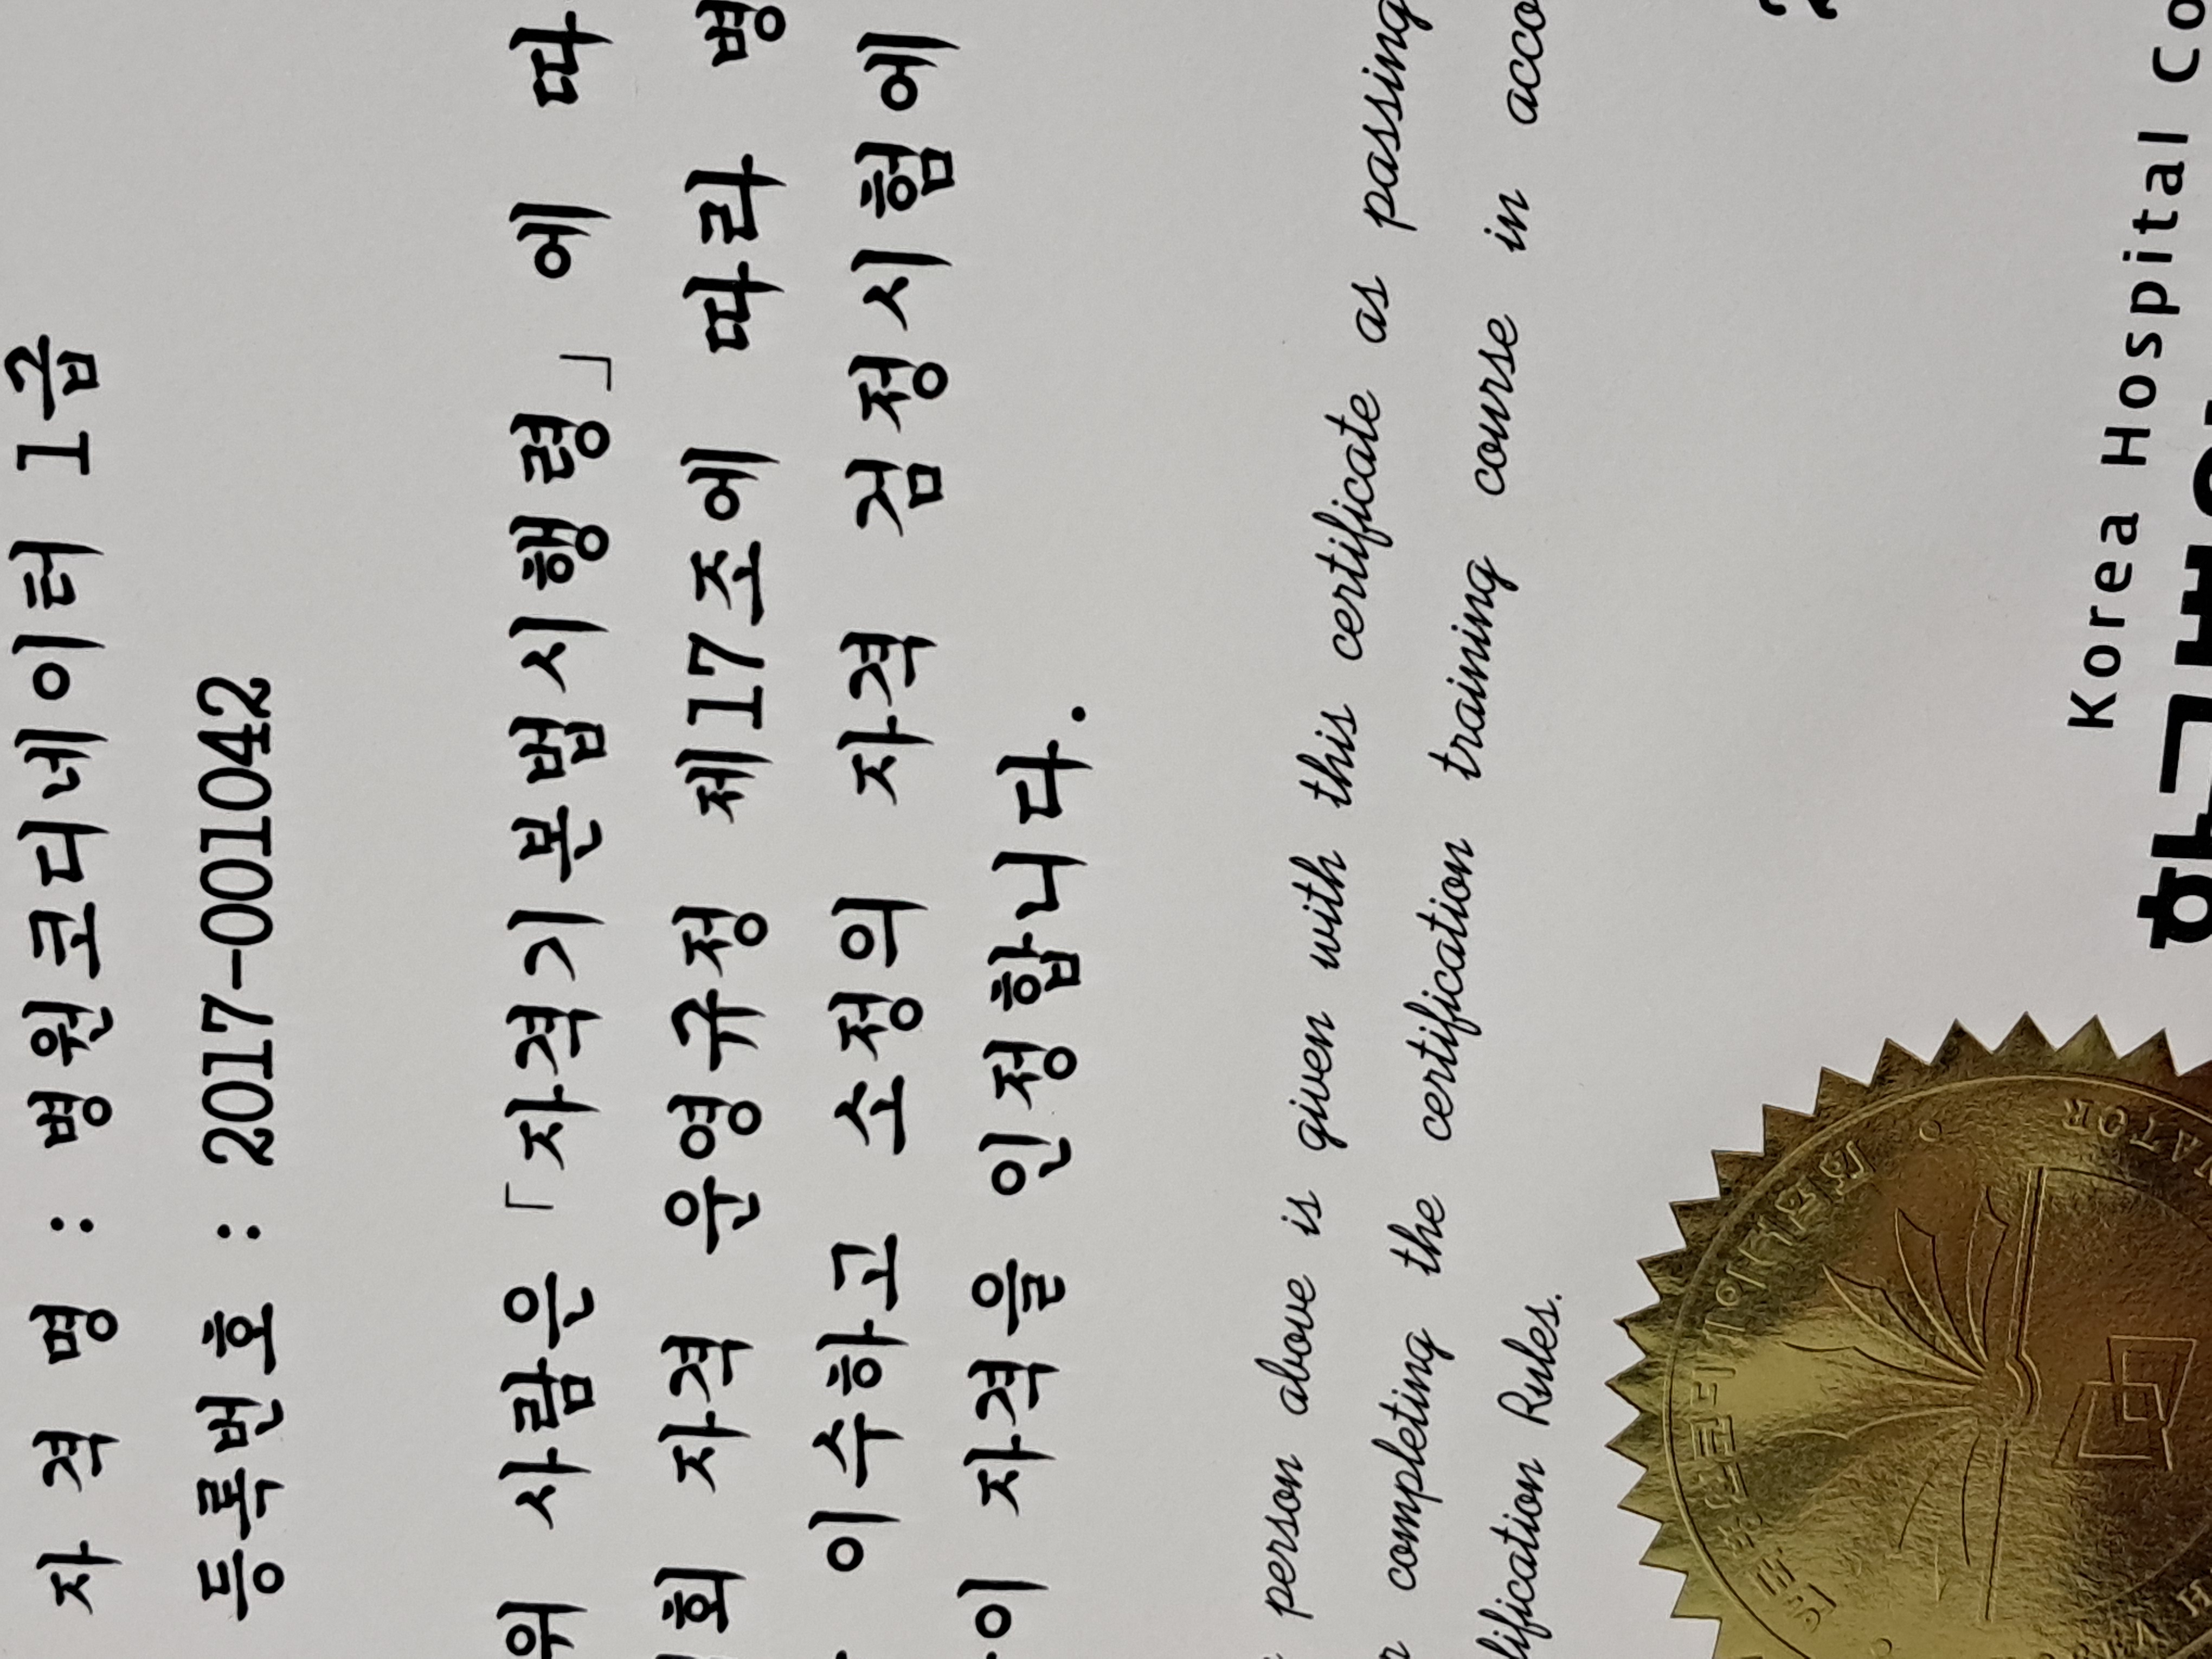 자 격 명 : 병원코디네이터 1급
등록번호 : 2017-001042
위 사람은 「자격기본법시행령」에 따
회 자격 운영규정 제17조에 따라 병
이수하고 소정의 자격 검정시험에
이 자격을 인정합니다.
person above is given with this certificate as passing
completing the certification training course in acco
lification Rules.
Korea Hospital Co
한국병원